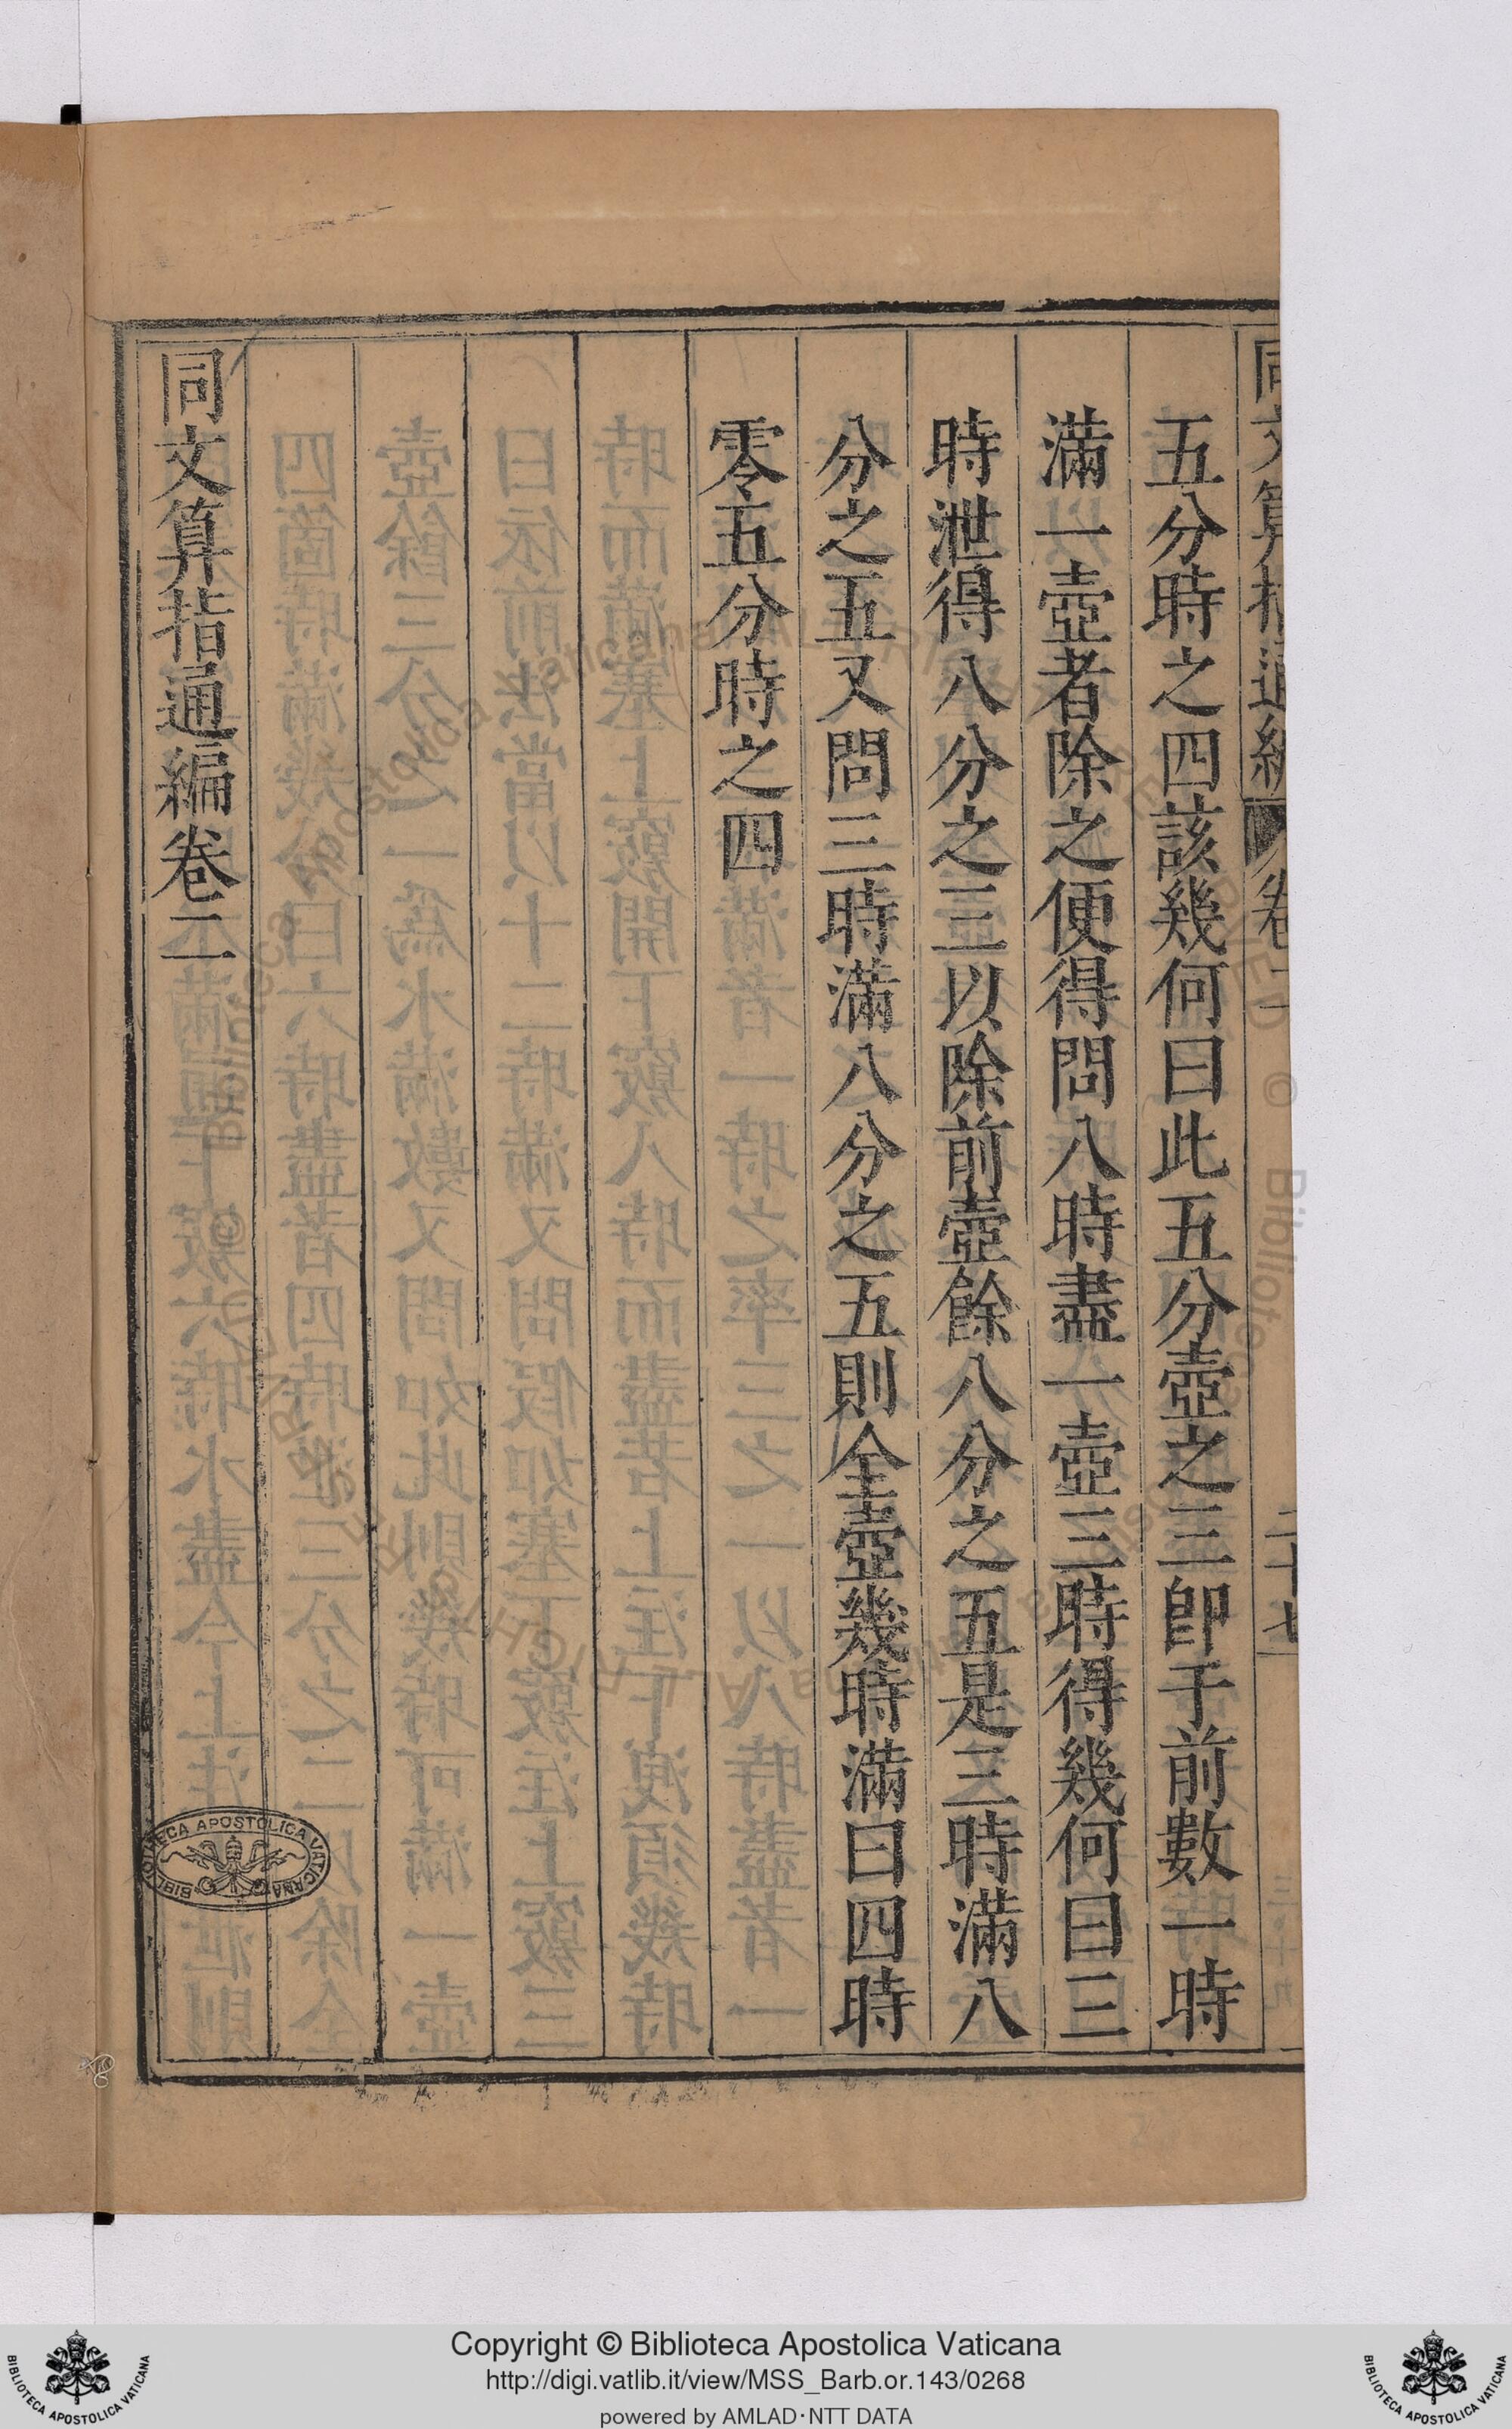 五分時之四該幾何曰此五分壺之三即于前數一時
滿一壺者除之便得問八時盡一壺三時得幾何曰三
時泄得八分之三以除前壺餘八分之五是三時滿八
分之五又問三時滿八分之五則全壺幾時滿曰四時
零五分時之四
同文算指通編卷二
BIBLIOTECA APOSTOLICA VATICANA
Copyright © Biblioteca Apostolica Vaticana
http://digi.vatlib.it/view/MSS_Barb.or.143/0268
powered by AMLAD·NTT DATA
BIBLIOTECA APOSTOLICA VATICANA
BIBLIOTECA APOSTOLICA VATICANA